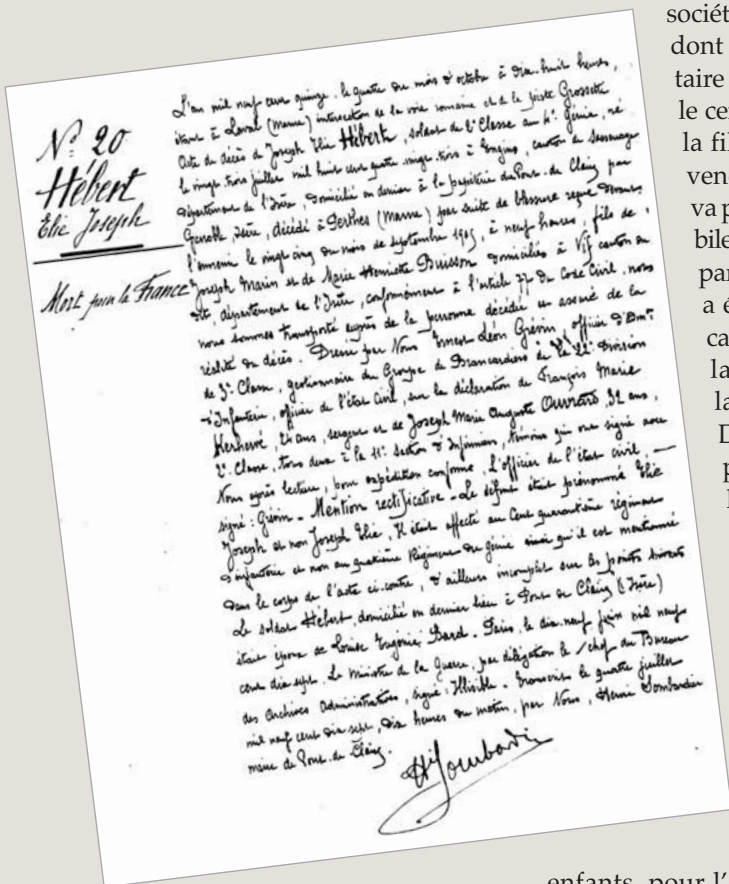 N° 20
Hébert
Elie Joseph
Mort pour la France
L'an mil neuf cent quinze, le quatre du mois d'octobre à dix huit heures,
étant à Laval (Marne) intersection de la voie romaine et de la piste Grossetti
Acte de décès de Joseph Elie Hébert, soldat de 2e Classe au 4e Génie, né
le vingt trois juillet mil huit cent quatre vingt trois à Engins, canton de Sassenage
département de l'Isère, domicilié en dernier à la papeterie du Pont-de-Claix par
Grenoble, Isère, décédé à Perthes (Marne) par suite de blessure reçue devant
l'ennemi le vingt cinq du mois de septembre 1915, à neuf heures, fils de
Joseph Marin et de Marie Henriette Buisson domiciliés à Vif canton du
dit, département de l'Isère, conformément à l'article 77 du Code Civil, nous
nous sommes transporté auprès de la personne décédée et assuré de la
réalité du décès. Dressé par Nous Ernest Léon Grévin, officier d'Adm°n
de 3e Classe, gestionnaire du Groupe de Brancardiers de la 22e Division
d'Infanterie, officier de l'état Civil, sur la déclaration de François Marie
Kerhervé, 24 ans, sergent et de Joseph Marie Auguste Ouvrard, 32 ans,
2e Classe, tous deux à la 11e Section d'Infirmiers, témoins qui ont signé avec
Nous après lecture, pour expédition conforme, L'officier de l'état civil,
signé : Grévin. Mention rectificative. Le défunt était prénommé Elie
Joseph et non Joseph Elie, Il était affecté au Cent quarantième régiment
d'infanterie et non au quatrième Régiment du génie ainsi qu'il est mentionné
dans le corps de l'acte ci-contre, d'ailleurs incomplet sur les points suivants
Le soldat Hébert, domicilié en dernier lieu à Pont de Claix (Isère)
était époux de Louise Eugénie Bard. Paris, le dix-neuf juin mil neuf
cent dix sept. Le Ministre de la Guerre, par délégation le chef du Bureau
des Archives Administratives, signé : Illisible. Transcrit le quatre juillet
mil neuf cent dix sept, dix heures du matin, par Nous, Henri Lombardin
maire de Pont-de-Claix.
sociét
dont
taire
le ce
la fil
ven
va p
bile
par
a é
ca
la
la
D
p
enfants, pour l'